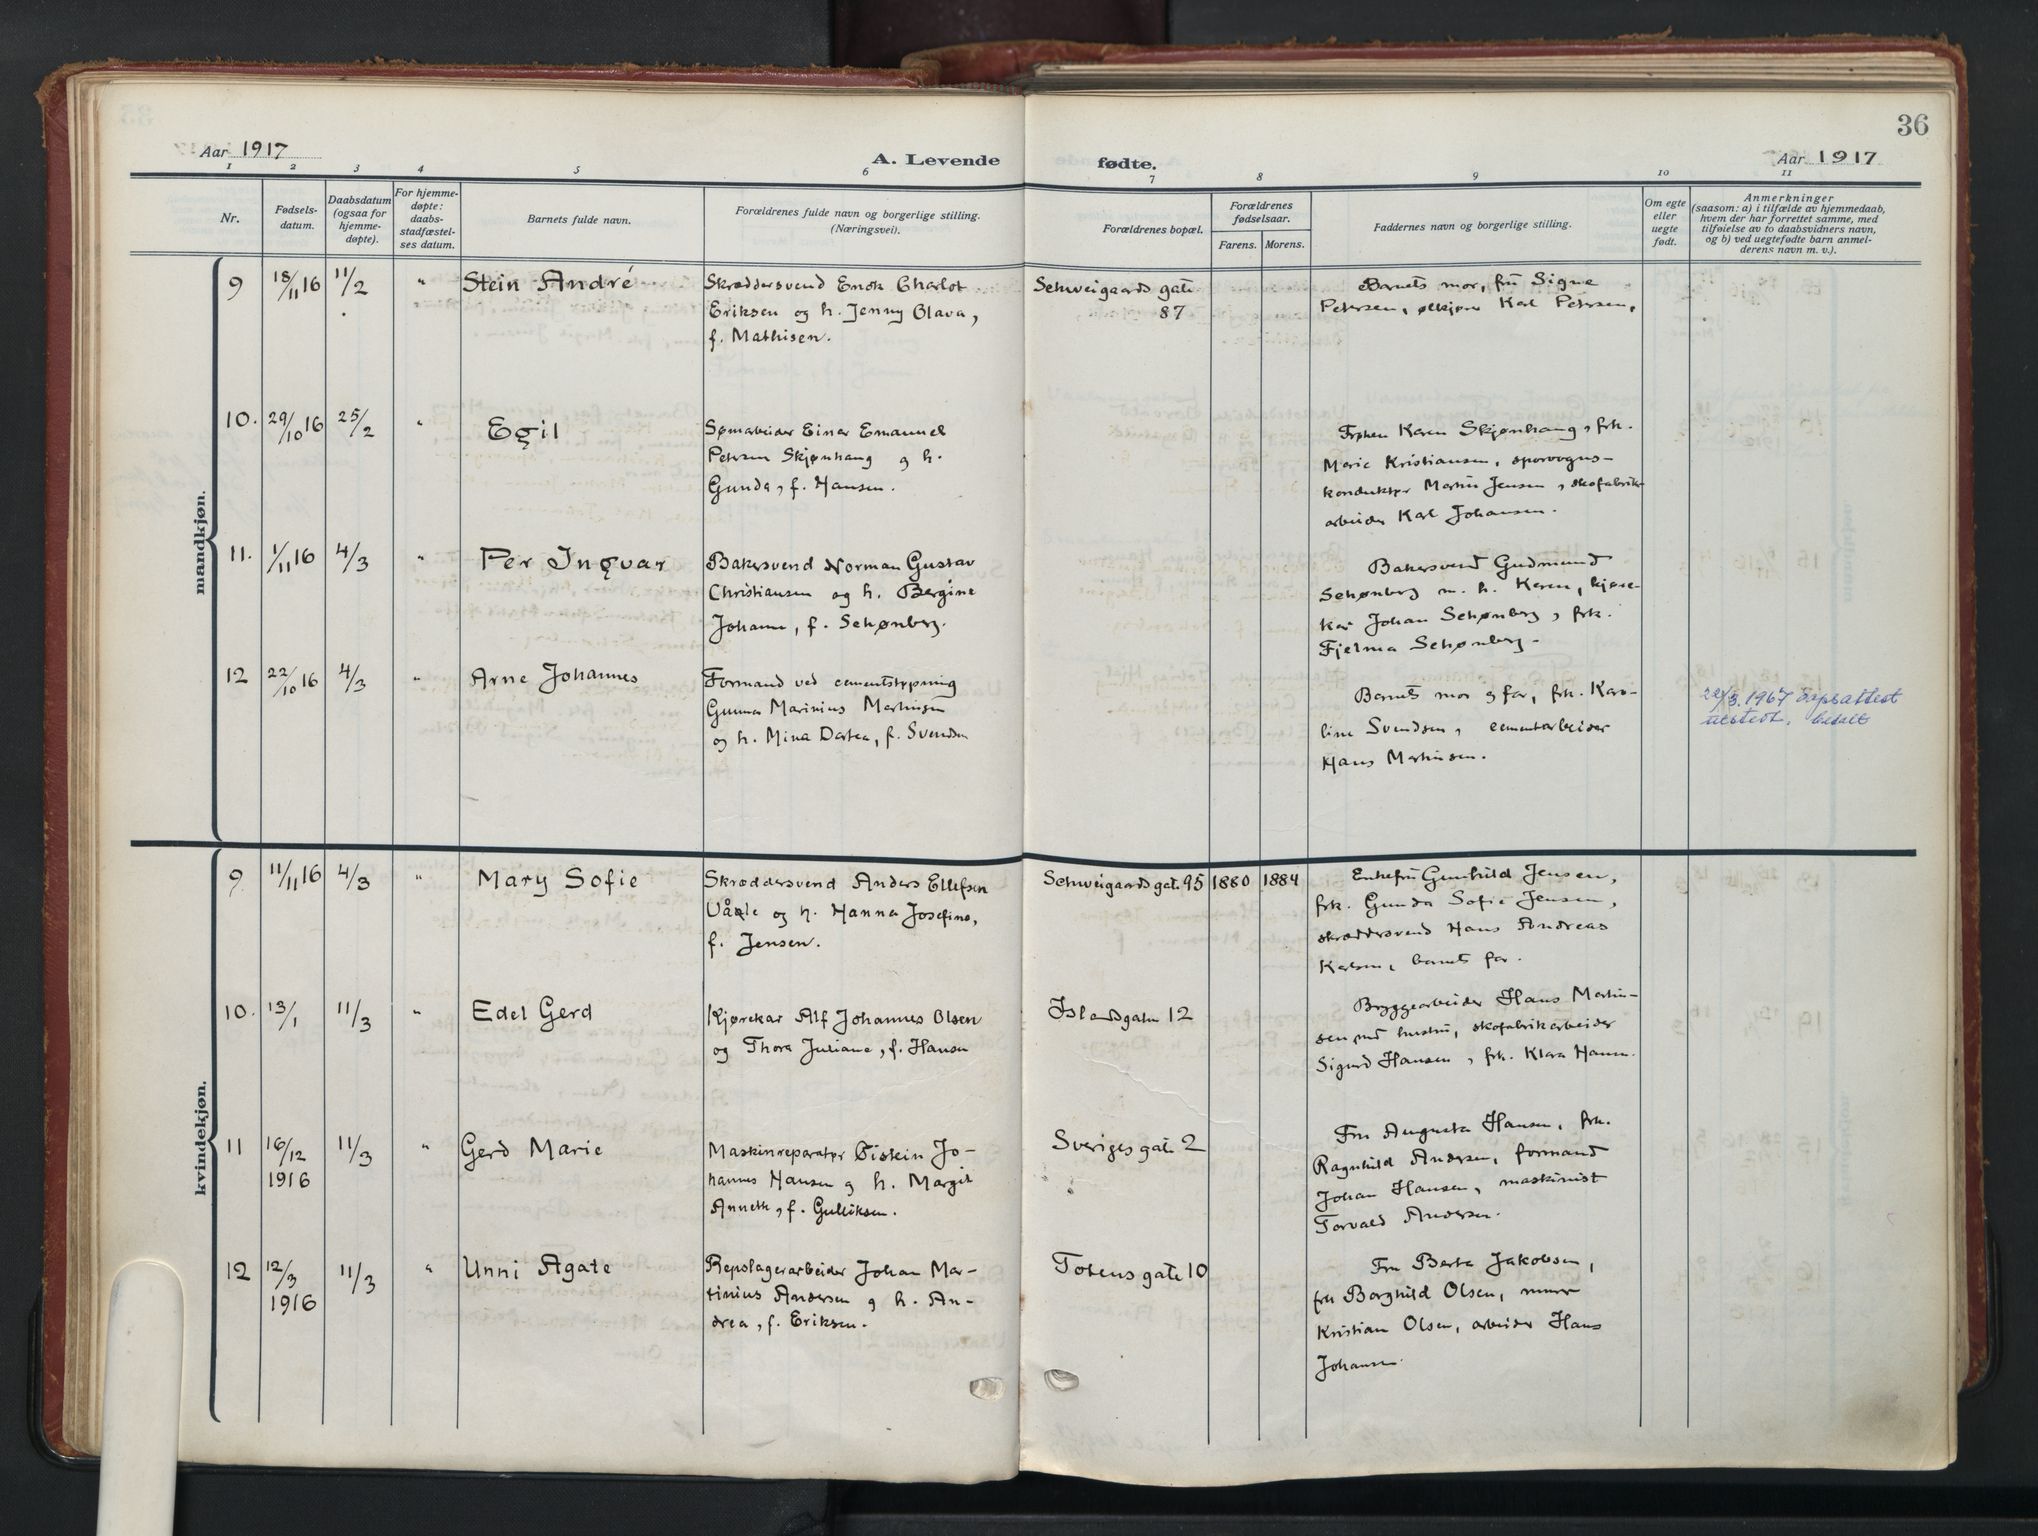 36
Aar 1917
A. Levende fødte.
Aar 1917
1 2 3 4 5 6 7 8 9 10 11
Nr.
Fødsels-
datum.
Daabsdatum
(ogsaa for
hjemme-
døpte).
For hjemme-
døpte:
daabs-
stadfæstel-
ses datum.
Barnets fulde navn.
Forældrenes fulde navn og borgerlige stilling.
(Næringsvei).
Forældrenes bopæl.
Forældrenes
fødselsaar.
Farens. Morens.
Faddernes navn og borgerlige stilling.
Om egte
eller
uegte
født.
Anmerkninger
(saasom: a) i tilfælde av hjemmedaab,
hvem der har forrettet samme, med
tilføielse av to daabsvidners navn,
og b) ved uegtefødte barn anmel-
derens navn m. v.).
mandkjøn.
9 18/11 16 11/2 " Stein André
Skræddersvend Enok Charlot
Eriksen og h. Jenny Olava,
f. Mathisen.
Schweigaards gate
87
Barnets mor, fru Signe
Petersen, ølkjører Karl Petersen.
10. 29/10 16 25/2 " Egil
Sømarbeider Einar Emanuel
Petersen Skjønhaug og h.
Gunda, f. Hansen.
Frøken Karen Skjønhaug, frk.
Marie Kristiansen, sporvogns-
konduktør Martin Jensen, skofabrik-
arbeider Karl Johansen.
11. 1/11 16 4/3 " Per Ingvar
Bakersvend Norman Gustav
Christiansen og h. Bergine
Johanne, f. Schønberg.
Bakersvend Gudmund
Schønberg m. h. Karen, kjøre-
kar Johan Schønberg, frk.
Fjelma Schønberg.
12 22/10 16 4/3 " Arne Johannes
Formand ved cementstøpning
Gunnar Marinius Martinsen
og h. Mina Dortea, f. Svendsen
Barnets mor og far, frk. Karo-
line Svendsen, cementarbeider
Hans Martinsen.
22/3. 1967 dåpsattest
utstedt.
kvindekjøn.
9 11/11 16 4/3 " Mary Sofie
Skræddersvend Anders Ellefsen
Våle og h. Hanna Josefine,
f. Jensen.
Schweigaardsgat. 95 1880 1884
Enkefru Gunhild Jensen,
frk. Gunda Sofie Jensen,
skræddersvend Hans Andreas
Karlsen, barnets far.
10. 13/1 11/3 " Edel Gerd
Kjørekar Alf Johannes Olsen
og Thora Juliane, f. Hansen
Islandsgaten 12
Bryggearbeider Hans Martin-
sen med hustru, skofabrikarbeider
Sigurd Hansen, frk. Klara Hansen.
11 16/12 1916 11/3 " Gerd Marie
Maskinreparatør Øistein Jo-
hannes Hansen og h. Margit
Annette, f. Gulliksen.
Sverigesgate 2
Fru Augusta Hansen, frk.
Ragnhild Andersen, formand
Johan Hansen, maskinist
Torvald Andersen.
12 12/3 1916 11/3 " Unni Agate
Repslagerarbeider Johan Mar-
tinius Andersen og h. An-
drea, f. Eriksen.
Totensgate 10
Fru Berta Jakobsen,
fru Borghild Olsen, murer
Kristian Olsen, arbeider Hans
Johansen.